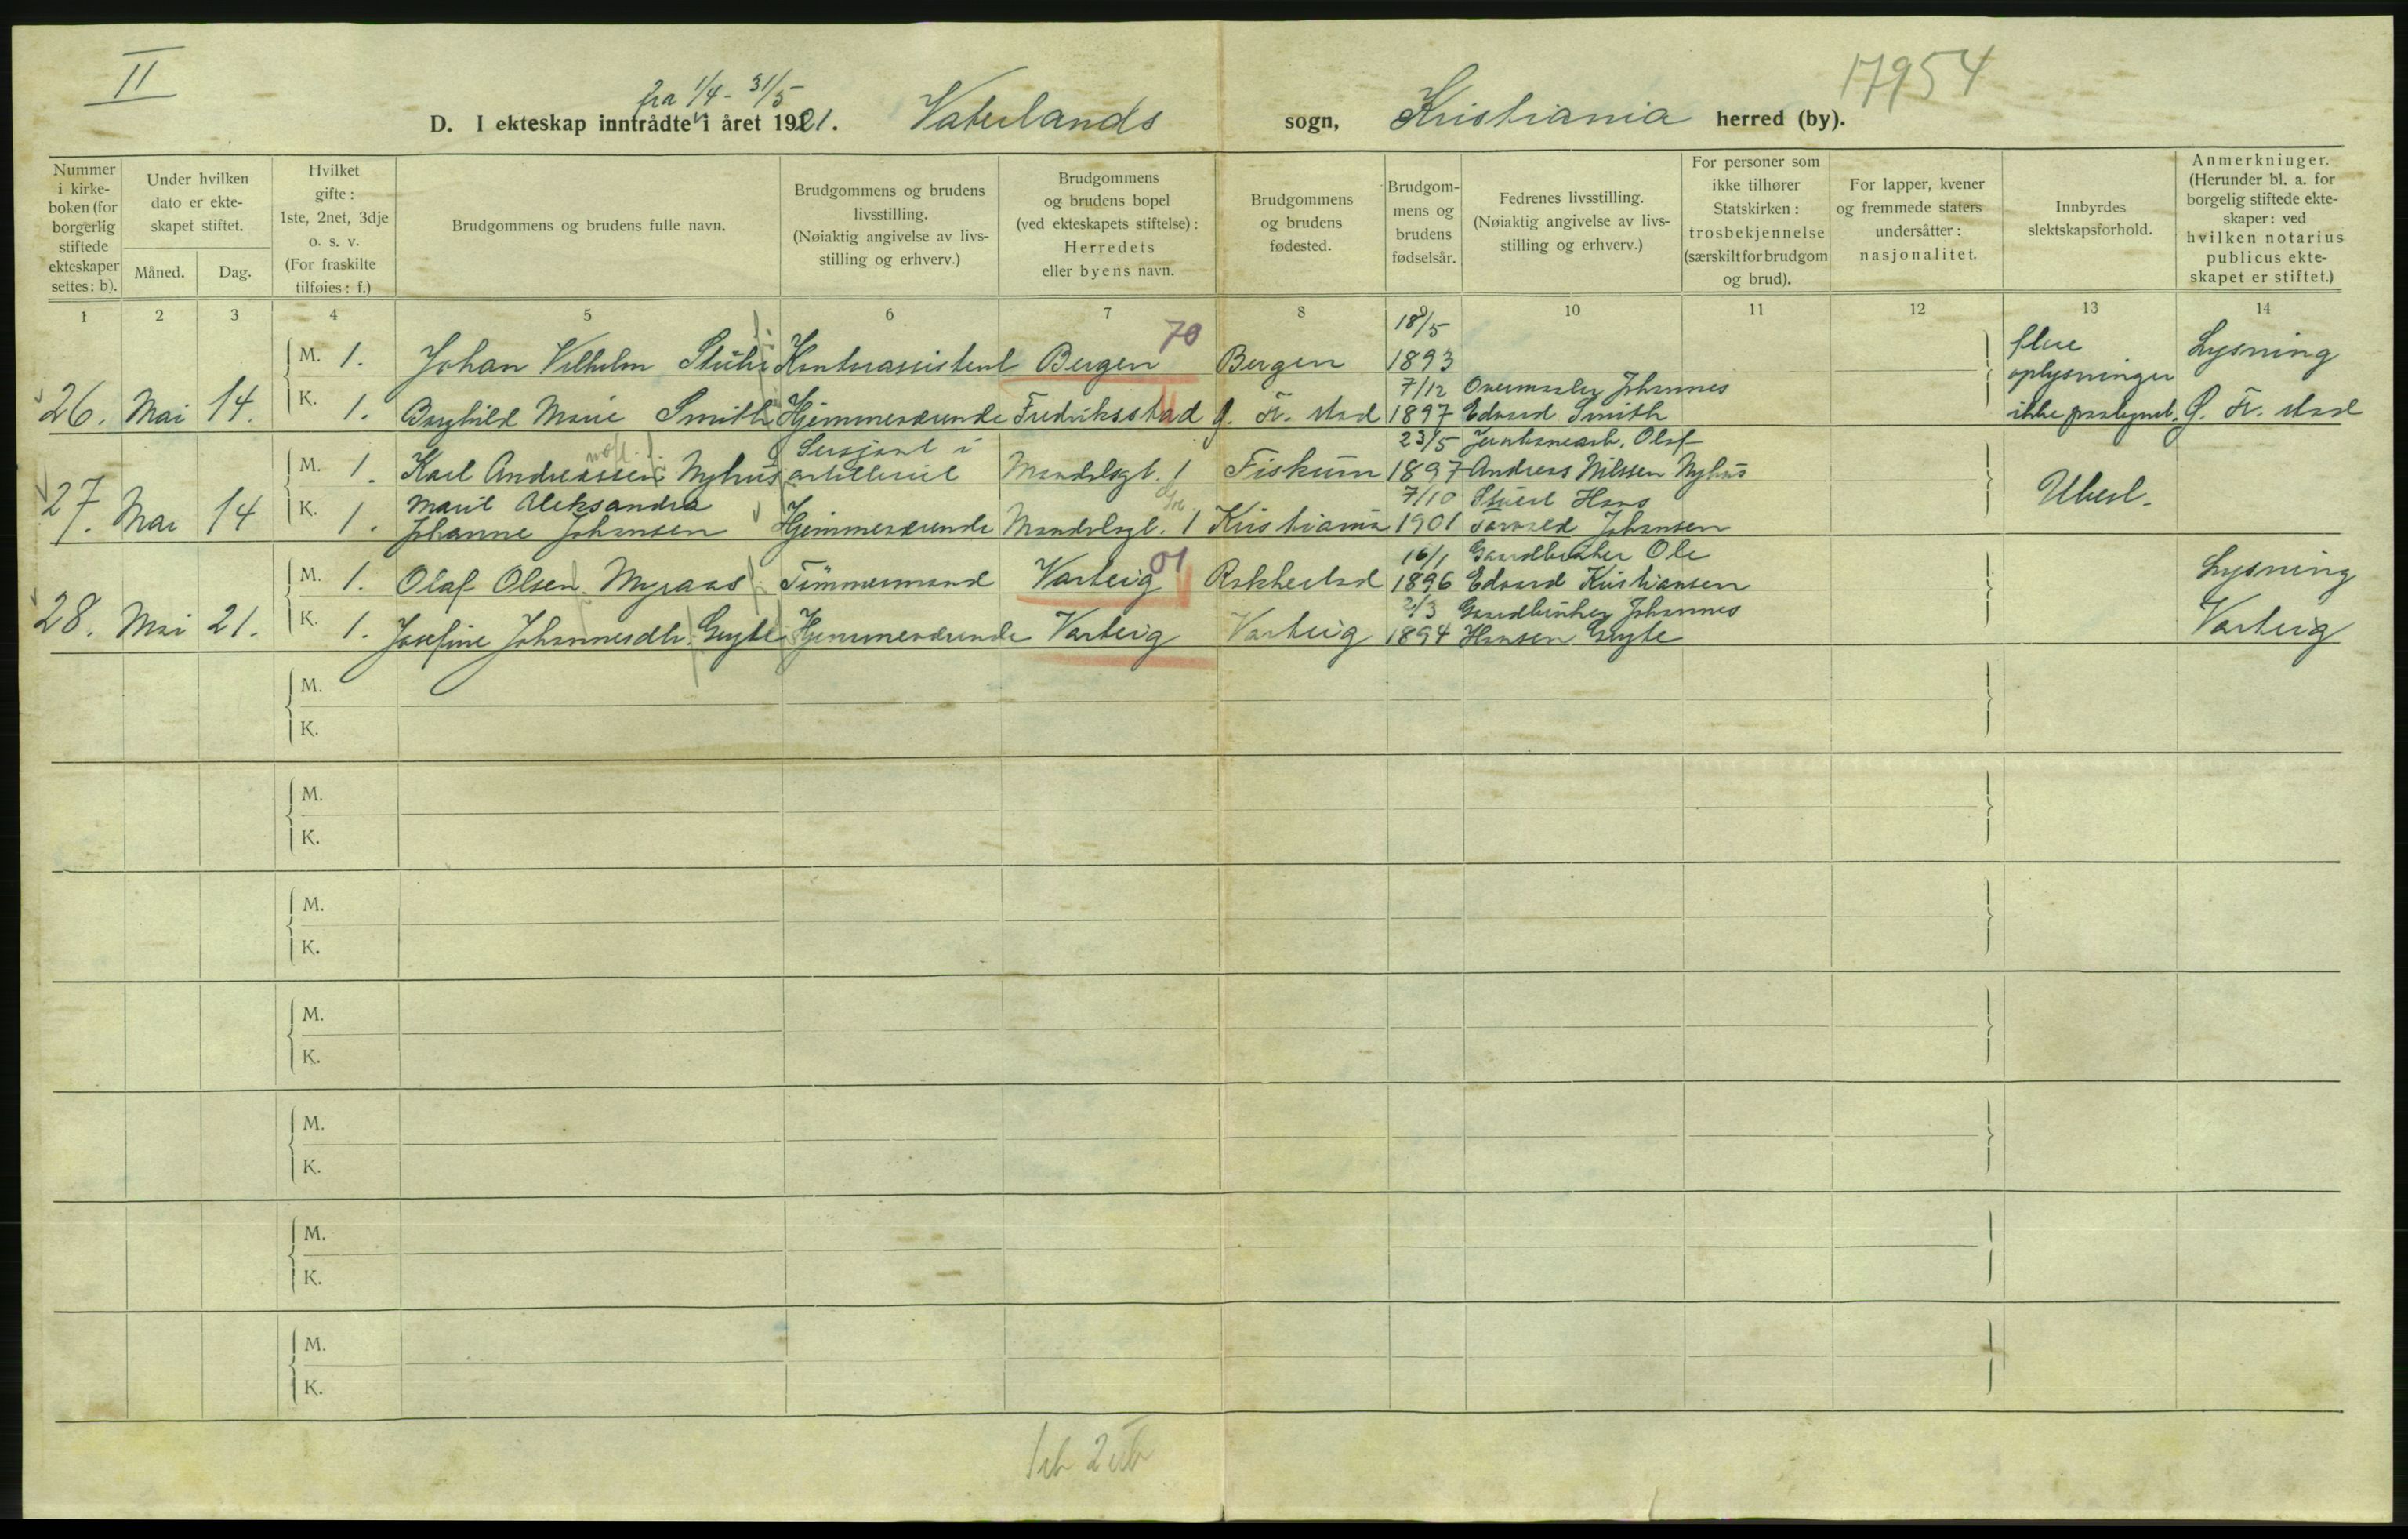 II
17954
fra 1/4 - 31/5
D. I ekteskap inntrådte i året 1921. Vaterlands sogn, Kristiania herred (by).
Nummer i kirke-boken (for borgerlig stiftede ekteskaper settes: b).
Under hvilken dato er ekte-skapet stiftet.
Måned. Dag.
Hvilket gifte: 1ste, 2net, 3dje o. s. v. (For fraskilte tilføies: f.)
Brudgommens og brudens fulle navn.
Brudgommens og brudens livsstilling. (Nøiaktig angivelse av livs-stilling og erhverv.)
Brudgommens og brudens bopel (ved ekteskapets stiftelse): Herredets eller byens navn.
Brudgommens og brudens fødested.
Brudgom-mens og brudens fødselsår.
Fedrenes livsstilling. (Nøiaktig angivelse av livs-stilling og erhverv.)
For personer som ikke tilhører Statskirken: trosbekjennelse (særskilt for brudgom og brud).
For lapper, kvener og fremmede staters undersåtter: nasjonalitet.
Innbyrdes slektskapsforhold.
Anmerkninger. (Herunder bl. a. for borgelig stiftede ekte-skaper: ved hvilken notarius publicus ekte-skapet er stiftet.)
1 2 3 4 5 6 7 8 9 10 11 12 13 14
M. 1. Johan Vilhelm Kontorassistent Bergen 70 Bergen 18/5 1893 flere oplysninger Lysning
26. Mai 14. K. 1. Borghild Marie Smith Hjemmeværende Fredriksstad G. Fr. stad 7/12 1897 Johannes Edvard Smith ikke G. Fr. stad
M. 1. Karl Andreassen Nyhus Sersjant i artilleriet 1 Fiskum 23/5 1897 Jernbanearb. Olaf Andreas Nilssen Nyhus
27. Mai 14 K. 1. Marit Aleksandra Johanne Johansen Hjemmeværende 1 Kristiania 7/10 1901 Hans Torvald Johansen Ubesl.
M. 1. Olaf Olsen Myraas Tømmermand Varteig 01 Rakkestad 16/1 1896 Gaardbruker Ole Edvard Kristiansen Lysning
28. Mai 21. K. 1. Josefine Johannesdtr. Hjemmeværende Varteig Varteig 2/3 1894 Gaardbruker Johannes Hansen Varteig
M.
K.
M.
K.
M.
K.
M.
K.
M.
K.
M.
K.
M.
K.